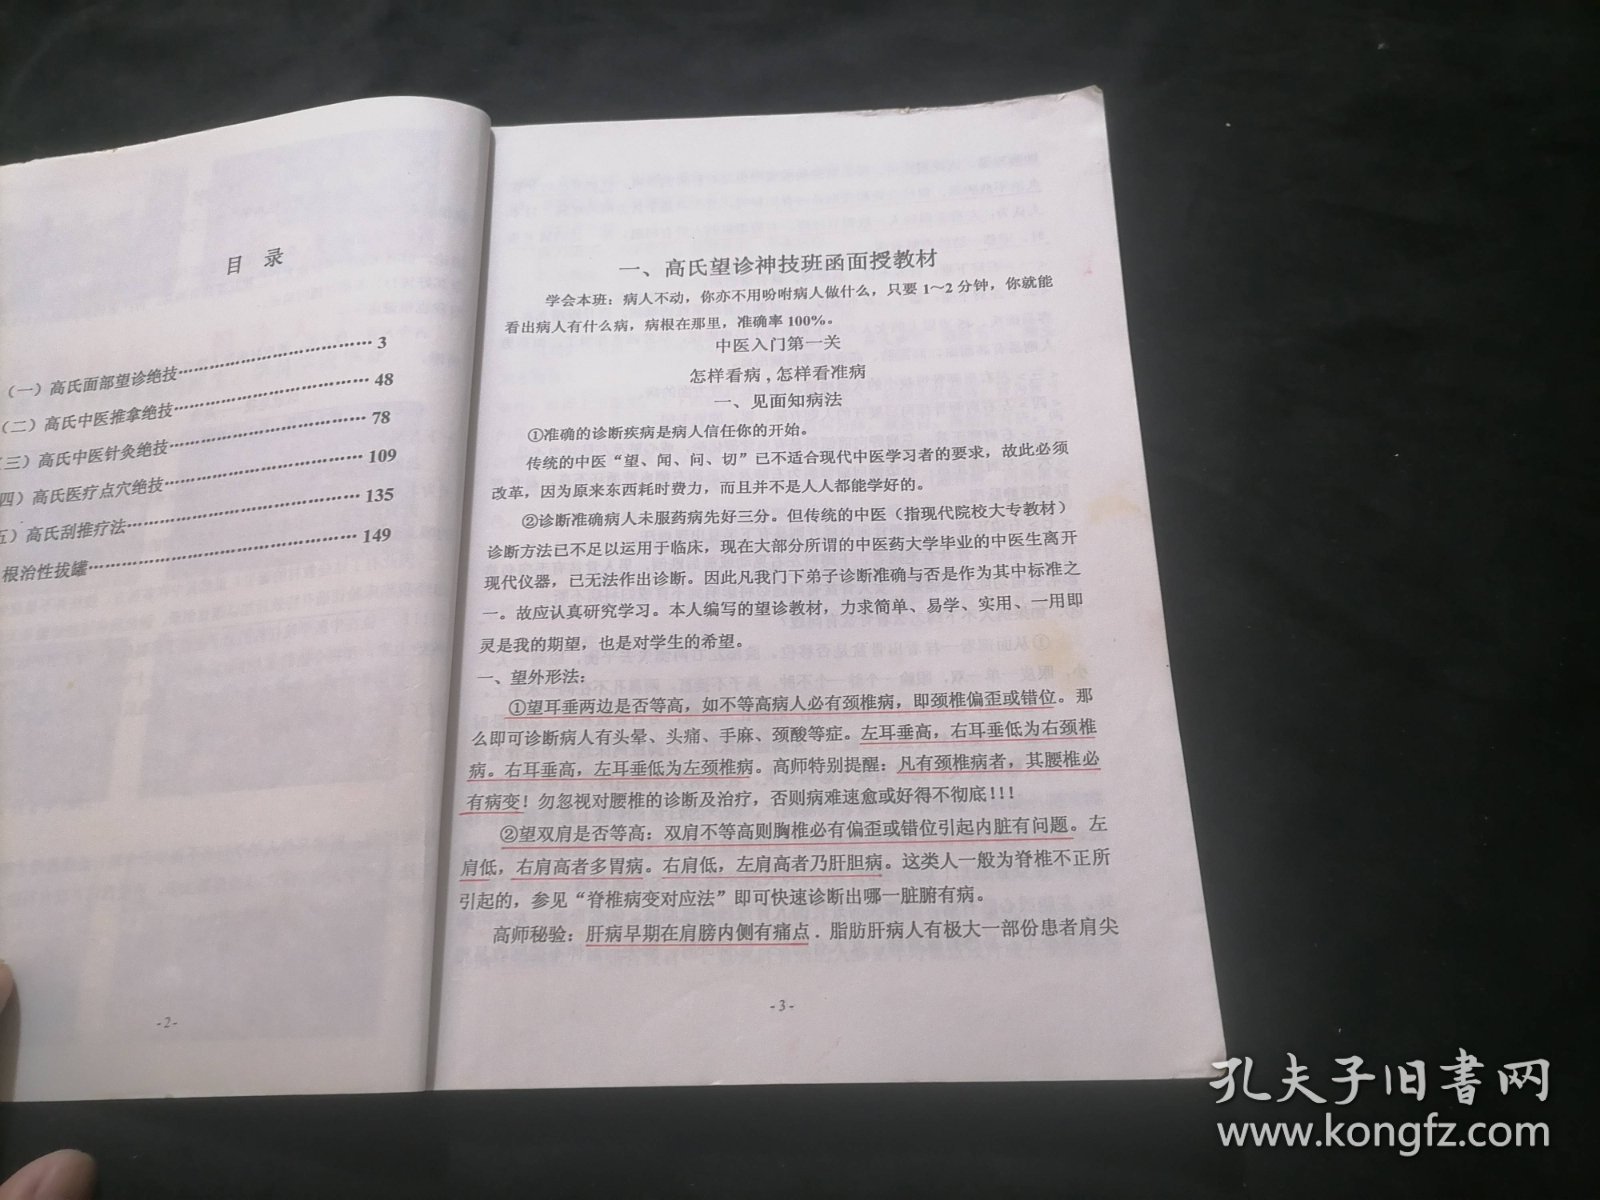 目 录
（一）高氏面部望诊绝技…………………………3
（二）高氏中医推拿绝技…………………………48
三）高氏中医针灸绝技…………………………78
四）高氏医疗点穴绝技…………………………109
五）高氏刮推疗法…………………………135
根治性拔罐…………………………149
-2-
一、高氏望诊神技班函面授教材
学会本班：病人不动，你亦不用吩咐病人做什么，只要 1～2 分钟，你就能
看出病人有什么病，病根在那里，准确率 100%。
中医入门第一关
怎样看病，怎样看准病
一、见面知病法
①准确的诊断疾病是病人信任你的开始。
传统的中医“望、闻、问、切”已不适合现代中医学习者的要求，故此必须
改革，因为原来东西耗时费力，而且并不是人人都能学好的。
②诊断准确病人未服药病先好三分。但传统的中医（指现代院校大专教材）
诊断方法已不足以运用于临床，现在大部分所谓的中医药大学毕业的中医生离开
现代仪器，已无法作出诊断。因此凡我门下弟子诊断准确与否是作为其中标准之
一。故应认真研究学习。本人编写的望诊教材，力求简单、易学、实用、一用即
灵是我的期望，也是对学生的希望。
一、望外形法：
①望耳垂两边是否等高，如不等高病人必有颈椎病，即颈椎偏歪或错位。那
么即可诊断病人有头晕、头痛、手麻、颈酸等症。左耳垂高，右耳垂低为右颈椎
病。右耳垂高，左耳垂低为左颈椎病。高师特别提醒：凡有颈椎病者，其腰椎必
有病变！勿忽视对腰椎的诊断及治疗，否则病难速愈或好得不彻底！！！
②望双肩是否等高：双肩不等高则胸椎必有偏歪或错位引起内脏有问题。左
肩低，右肩高者多胃病。右肩低，左肩高者乃肝胆病。这类人一般为脊椎不正所
引起的，参见“脊椎病变对应法”即可快速诊断出哪一脏腑有病。
高师秘验：肝病早期在肩膀内侧有痛点．脂肪肝病人有极大一部份患者肩尖
-3-
孔夫子旧书网
www.kongfz.com